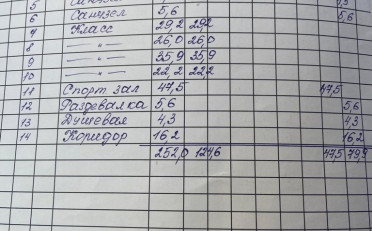 5 Санузел
6 Санузел 5,6 5,6
7 Класс 29,2 29,2
8 —"— 26,0 26,0
9 —"— 35,9 35,9
10 —"— 22,2 22,2
11 Спорт зал 47,5 47,5
12 Раздевалка 5,6 5,6
13 Душевая 4,3 4,3
14 Коридор 16,2 16,2
252,0 124,6 47,5 79,9